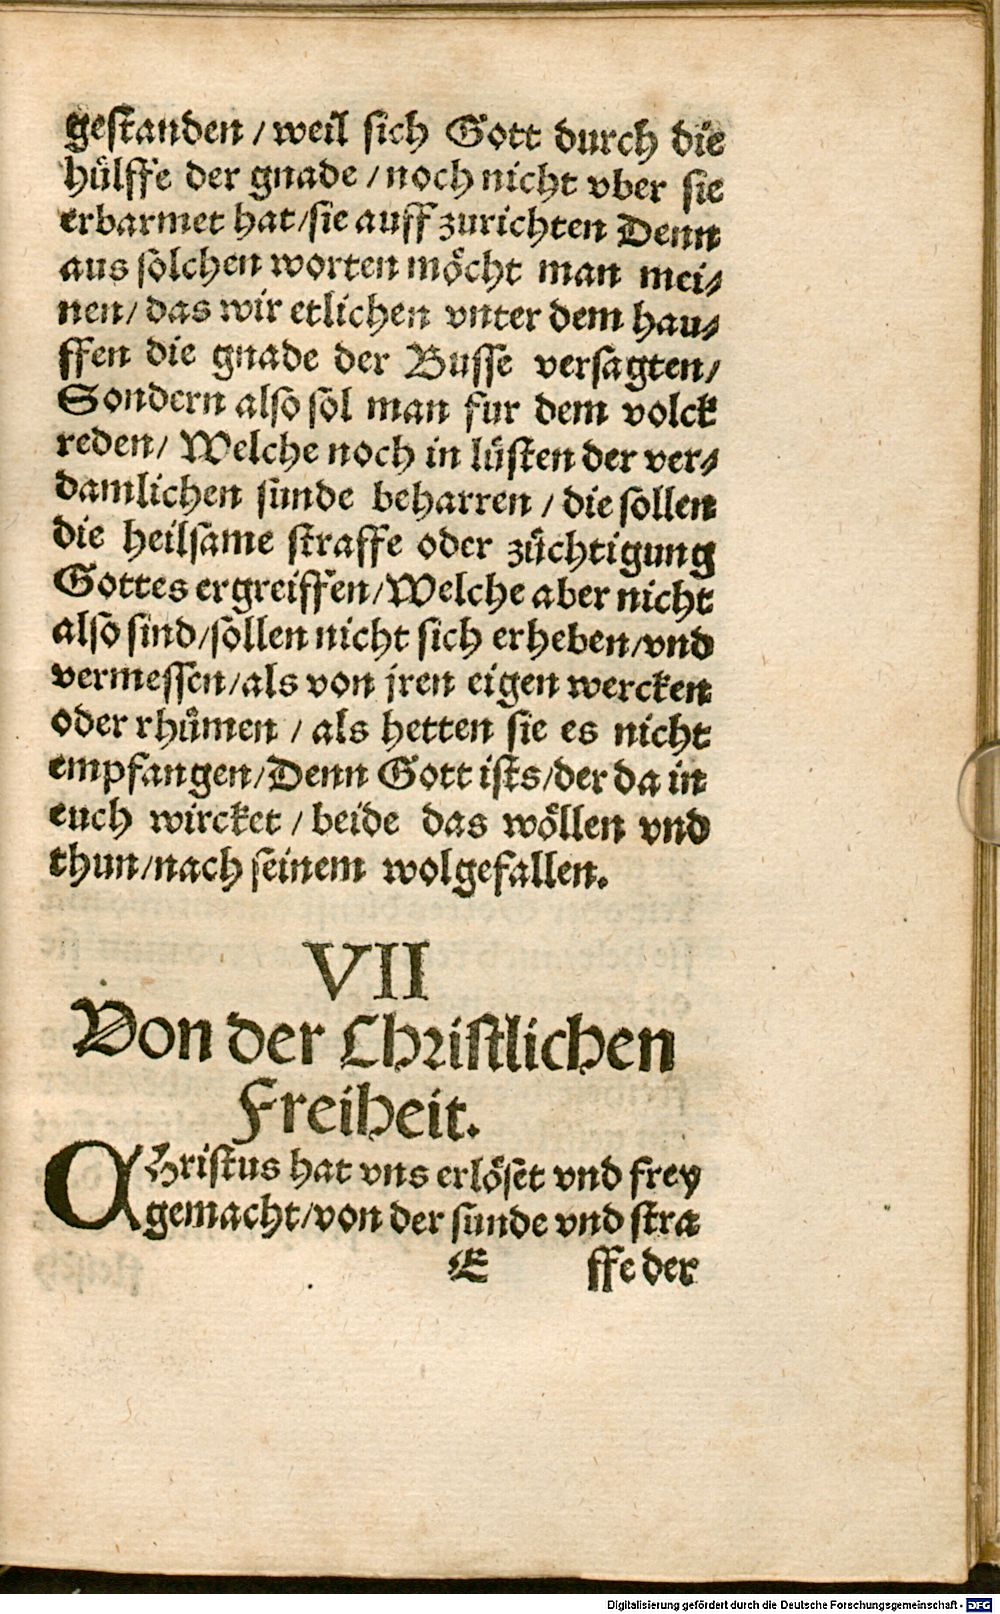 gestanden / weil sich Gott durch die
hülffe der gnade / noch nicht vber sie
erbarmet hat/sie auff zurichten Denn
aus solchen worten möcht man mei⸗
nen/ das wir etlichen vnter dem hau⸗
ffen die gnade der Busse versagten/
Sondern also sol man fur dem volck
reden/ Welche noch in lüsten der ver⸗
damlichen sunde beharren / die sollen
die heilsame straffe oder züchtigung
Gottes ergreiffen/Welche aber nicht
also sind/sollen nicht sich erheben/vnd
vermessen/als von jren eigen wercken
oder rhümen / als hetten sie es nicht
empfangen/Denn Gott ists/der da in
euch wircket / beide das wöllen vnd
thun/nach seinem wolgefallen.
VII
Von der Christlichen
Freiheit.
Christus hat vns erlöset vnd frey
gemacht/von der sunde vnd stra
E ffe der
Digitalisierung gefördert durch die Deutsche Forschungsgemeinschaft - DFG